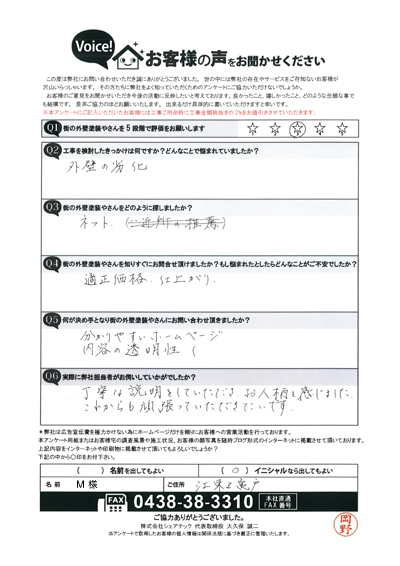 Voice!
お客様の声をお聞かせください
この度は弊社にお問い合わせいただき誠にありがとうございました。世の中には弊社の存在やサービスをご存知ないお客様が
沢山いらっしゃいます。その方たちに弊社をよく知っていただくためのアンケートにご協力いただけないでしょうか。
お客様のご意見をお聞かせいただき今後の活動に反映したいと考えております。良かったこと、嬉しかったこと、どのような些細な事で
も結構です。是非ご協力のほどお願いいたします。出来るだけ具体的に書いていただけますと幸いです。
※本アンケートにご記入いただいたお客様には工事ご用命時に工事金額税抜きの2%をお値引きさせていただきます。
Q1 街の外壁塗装やさんを5段階で評価をお願いします
Q2 工事を検討したきっかけは何ですか?どんなことで悩まれていましたか?
外壁の劣化
Q3 街の外壁塗装やさんをどのように探しましたか?
ネット.
Q4 街の外壁塗装やさんを知りすぐにお問合せ頂けましたか?もし悩まれたとしたらどんなことがご不安でしたか?
適正価格、仕上がり
Q5 何が決め手となり街の外壁塗装やさんにお問い合わせ頂きましたか?
分かりやすいホームページ
内容の透明性
Q6 実際に弊社担当者がお伺いしていかがでしたか?
丁寧な説明をしていただき お人柄を感じました
これからも頑張っていただきたいです
*弊社は広告宣伝費を極力かけない為にホームページだけを頼りにお客様への営業活動を行っております。
本アンケート用紙またはお客様宅の調査風景や施工状況、お客様の顔写真を随時ブログ形式のインターネットに掲載させて頂いております。
上記内容をインターネットや印刷物に掲載させて頂いてもよろしいでしょうか?
下記の中から○印をお付下さい。
( ) 名前を出してもよい ( ○ ) イニシャルなら出してもよい
名前 M 様 ご住所 江東区亀戸
FAX 0438-38-3310 本社直通 FAX番号
ご協力ありがとうございました。
株式会社シェアテック 代表取締役 大久保 誠二
※アンケートで取得したお客様の個人情報は関係法規に基づき厳正に管理いたします。
岡野